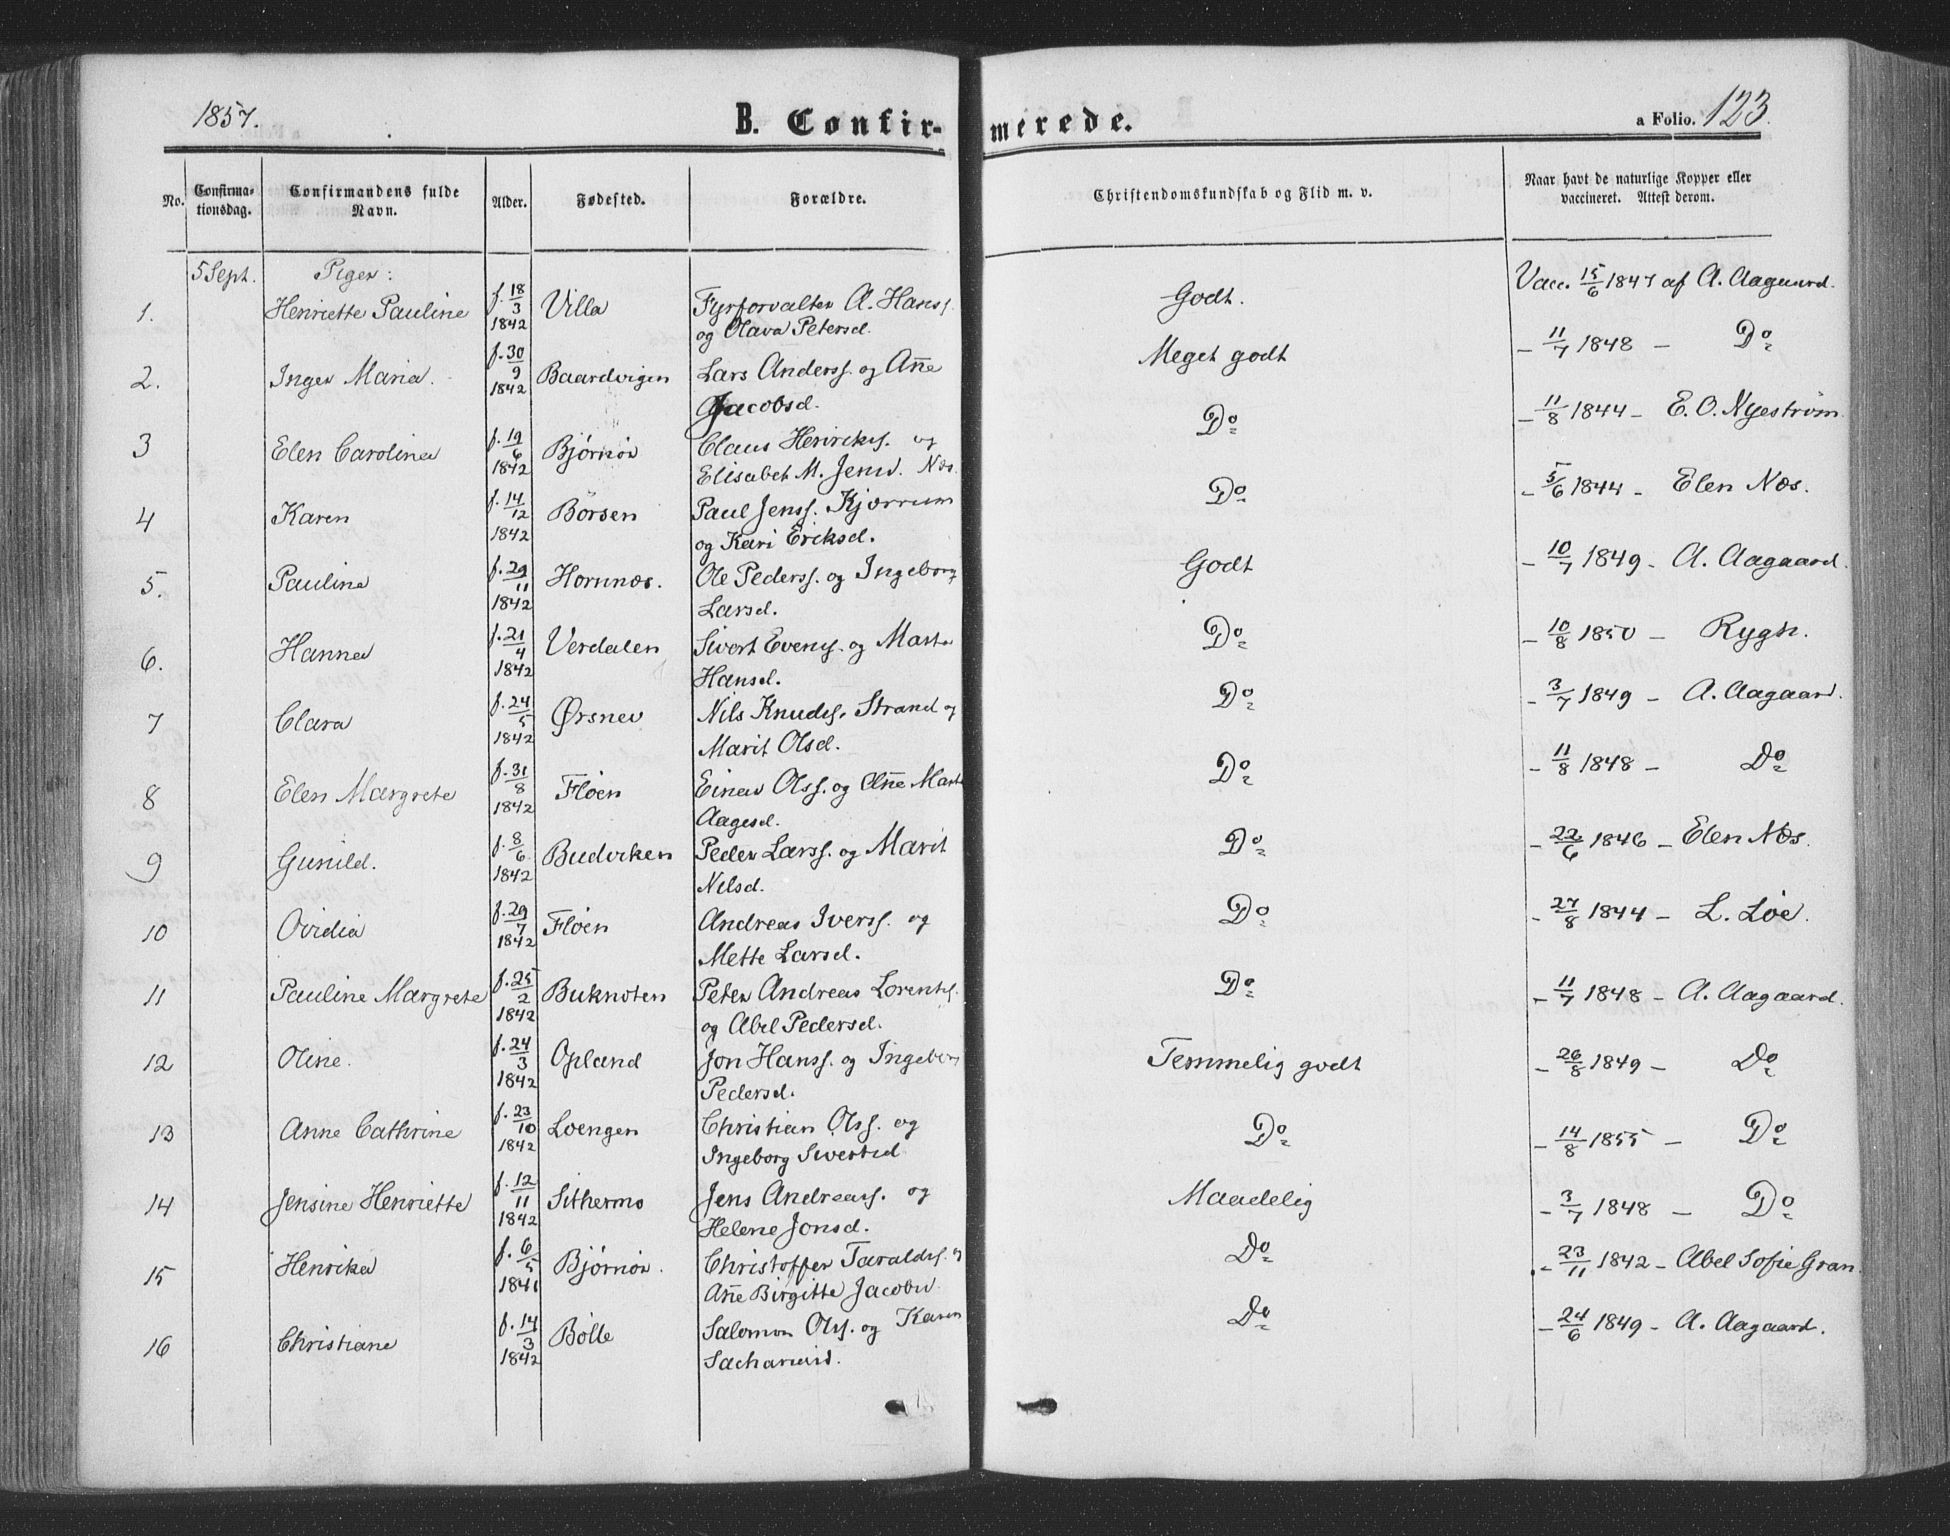 1857. B. Confirmerede. a Folio. 123.
No. Confirmationsdag. Confirmandens fulde Navn. Alder. Fødested. Forældre. Christendomskundskab og Flid m. v. Naar havt de naturlige Kopper eller vaccineret. Attest derom.
5 Sept. Piger:
1. Henriette Pauline f. 18/3 1842 Villa Fyrforvalter A. Hanss. og Olava Petersd. Godt. Vacc. 15/6 1847 af A. Aagaard.
2. Inger Maria. f. 30/9 1842 Baardvigen Lars Anderss. og Añe Jacobsd. Meget godt - 11/7 1848 - Do
3 Elen Carolina f. 19/6 1842 Bjørnør Claus Henriks. og Elisabet M. Jensd. Næs. Do - 11/8 1844 - E. O. Nyestrøm.
4 Karen f. 14/12 1842 Børsen Paul Jenss. Kjærrum og Kari Eriksd. Do - 5/6 1844 - Elen Næs.
5. Pauline f. 29/11 1842 Hornnæs. Ole Pederss. og Ingeborg Larsd. Godt - 10/7 1849 - A. Aagaard.
6. Hanna f. 21/4 1842 Verdalen Sivert Evens. og Marta Hansd. Do - 10/8 1850 - Rygh.
7 Clara f. 24/5 1842 Ørsnev Nils Knuds. Strand og Marit Olsd. Do - 3/7 1849 - A. Aagaard.
8 Elen Margrete f. 31/8 1842 Fløen Einar Olss. og Añe Marta Aagesd. Do - 11/8 1848 - Do
9 Gunild. f. 8/6 1842 Budviken Peder Larss. og Marit Nilsd. Do - 22/6 1846 - Elen Næs.
10 Ovidia f. 29/7 1842 Fløen Andreas Iverss. og Mette Larsd. Do - 27/8 1844 - L. Løe.
11 Pauline Margrete f. 25/2 1842 Buknoten Peter Andreas Lorents. og Abel Pedersd. Do - 11/7 1848 - A. Aagaard.
12 Oline. f. 24/3 1842 Opland Jon Hanss. og Ingeborg Pedersd. Temmelig godt - 26/8 1849 - Do
13 Anne Cathrine f. 23/10 1842 Loengen Christian Olss. og Ingeborg Sivertsd. Do - 14/8 1855 - Do
14 Jensine Henriette f. 12/11 1842 Sithermo Jens Andreass. og Helene Jonsd. Maadelig - 3/7 1848 - Do
15 Henrika f. 6/5 1841 Bjørnør. Christoffer Taralds. og Añe Birgitte Jacobsd. Do - 23/11 1842 - Abel Sofie Gran.
16 Christiane f. 14/3 1842 Bolle Salomon Olss. og Karen Sachariasd. Do - 24/6 1849 - A. Aagaard.